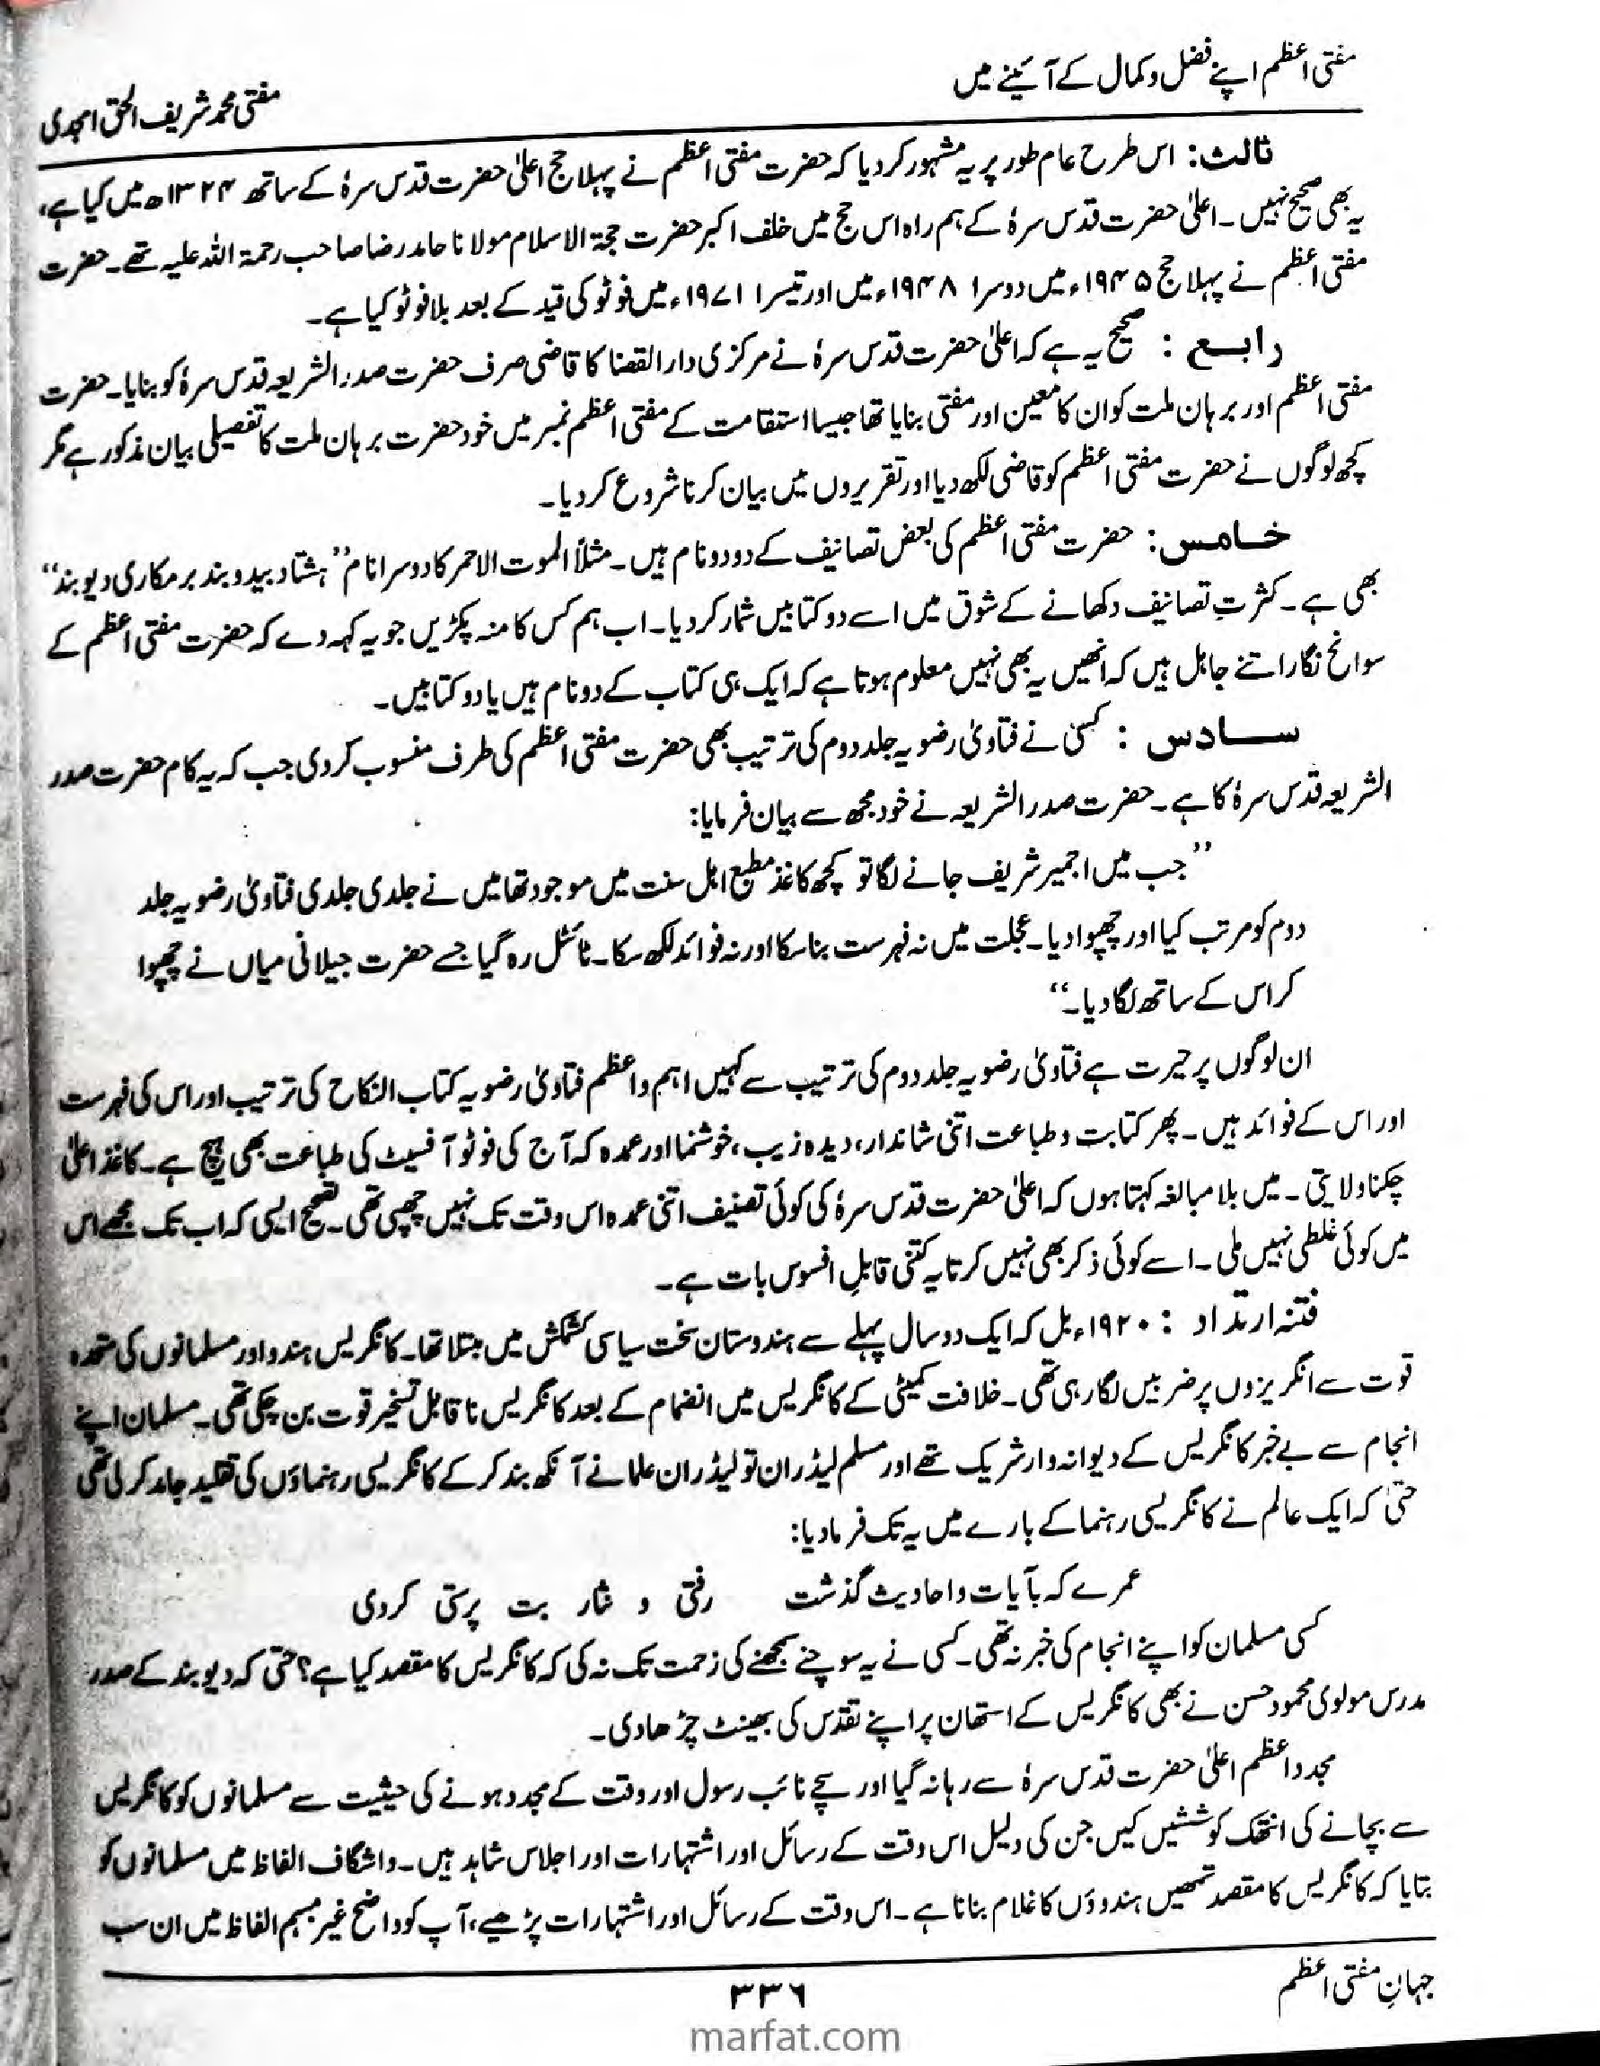 مفتی اعظم اپنے فضل و کمال کے آئینے میں
مفتی محمد شریف الحق امجدی
ثالث: اس طرح عام طور پر یہ مشہور کر دیا کہ حضرت مفتی اعظم نے پہلا حج اعلیٰ حضرت قدس سرہٗ کے ساتھ ۱۳۲۴ھ میں کیا ہے،
یہ بھی صحیح نہیں۔ اعلیٰ حضرت قدس سرہٗ کے ہم راہ اس حج میں خلف اکبر حضرت حجۃ الاسلام مولانا حامد رضا صاحب رحمۃ اللہ علیہ تھے۔ حضرت
مفتی اعظم نے پہلا حج ۱۹۴۵ء میں دوسرا ۱۹۴۸ء میں اور تیسرا ۱۹۷۱ء میں فوٹو کی قید کے بعد بلا فوٹو کیا ہے۔
رابع: صحیح یہ ہے کہ اعلیٰ حضرت قدس سرہٗ نے مرکزی دار القضا کا قاضی صرف حضرت صدر الشریعہ قدس سرہٗ کو بنایا۔ حضرت
مفتی اعظم اور برہان ملت کو ان کا معین اور مفتی بنایا تھا جیسا استقامت کے مفتی اعظم نمبر میں خود حضرت برہان ملت کا تفصیلی بیان مذکور ہے مگر
کچھ لوگوں نے حضرت مفتی اعظم کو قاضی لکھ دیا اور تقریروں میں بیان کرنا شروع کر دیا۔
خامس: حضرت مفتی اعظم کی بعض تصانیف کے دو دو نام ہیں۔ مثلاً الموت الاحمر کا دوسرا نام ”ہشتاد بید و بند بر مکاری دیوبند“
بھی ہے۔ کثرتِ تصانیف دکھانے کے شوق میں اسے دو کتابیں شمار کر دیا۔ اب ہم کس کا منہ پکڑیں جو یہ کہہ دے کہ حضرت مفتی اعظم کے
سوانح نگار اتنے جاہل ہیں کہ انھیں یہ بھی نہیں معلوم ہوتا ہے کہ ایک ہی کتاب کے دو نام ہیں یا دو کتابیں۔
سادس: کسی نے فتاویٰ رضویہ جلد دوم کی ترتیب بھی حضرت مفتی اعظم کی طرف منسوب کر دی جب کہ یہ کام حضرت صدر
الشریعہ قدس سرہٗ کا ہے۔ حضرت صدر الشریعہ نے خود مجھ سے بیان فرمایا:
”جب میں اجمیر شریف جانے لگا تو کچھ کاغذ مطبع اہل سنت میں موجود تھا میں نے جلدی جلدی فتاویٰ رضویہ جلد
دوم کو مرتب کیا اور چھپوا دیا۔ عجلت میں نہ فہرست بنا سکا اور نہ فوائد لکھ سکا۔ ٹائٹل رہ گیا جسے حضرت جیلانی میاں نے چھپوا
کر اس کے ساتھ لگا دیا۔“
ان لوگوں پر حیرت ہے فتاویٰ رضویہ جلد دوم کی ترتیب سے کہیں اہم و اعظم فتاویٰ رضویہ کتاب النکاح کی ترتیب اور اس کی فہرست
اور اس کے فوائد ہیں۔ پھر کتابت و طباعت اتنی شاندار، دیدہ زیب، خوشنما اور عمدہ کہ آج کی فوٹو آفسیٹ کی طباعت بھی ہیچ ہے۔ کاغذ اعلیٰ
چکنا ولایتی۔ میں بلا مبالغہ کہتا ہوں کہ اعلیٰ حضرت قدس سرہٗ کی کوئی تصنیف اتنی عمدہ اس وقت تک نہیں چھپی تھی۔ تصحیح ایسی کہ اب تک مجھے اس
میں کوئی غلطی نہیں ملی۔ اسے کوئی ذکر بھی نہیں کرتا یہ کتنی قابلِ افسوس بات ہے۔
فتنہ ارتداد: ۱۹۲۰ء بل کہ ایک دو سال پہلے سے ہندوستان سخت سیاسی کشمکش میں مبتلا تھا۔ کانگریس ہندو اور مسلمانوں کی متحدہ
قوت سے انگریزوں پر ضربیں لگا رہی تھی۔ خلافت کمیٹی کے کانگریس میں انضمام کے بعد کانگریس ناقابل تسخیر قوت بن چکی تھی۔ مسلمان اپنے
انجام سے بے خبر کانگریس کے دیوانہ وار شریک تھے اور مسلم لیڈران تو لیڈران علما نے آنکھ بند کر کے کانگریسی رہنماؤں کی تقلید جامد کر لی تھی
حتیٰ کہ ایک عالم نے کانگریسی رہنما کے بارے میں یہ تک فرما دیا:
عمرے کہ بآیات و احادیث گذشت رفتی و نثار بت پرستی کردی
کسی مسلمان کو اپنے انجام کی خبر نہ تھی۔ کسی نے یہ سوچنے سمجھنے کی زحمت تک نہ کی کہ کانگریس کا مقصد کیا ہے؟ حتیٰ کہ دیوبند کے صدر
مدرس مولوی محمود حسن نے بھی کانگریس کے استھان پر اپنے تقدس کی بھینٹ چڑھا دی۔
مجدد اعظم اعلیٰ حضرت قدس سرہٗ سے رہا نہ گیا اور سچے نائب رسول اور وقت کے مجدد ہونے کی حیثیت سے مسلمانوں کو کانگریس
سے بچانے کی انتھک کوششیں کیں جن کی دلیل اس وقت کے رسائل اور اشتہارات اور اجلاس شاہد ہیں۔ واشگاف الفاظ میں مسلمانوں کو
بتایا کہ کانگریس کا مقصد تمھیں ہندوؤں کا غلام بنانا ہے۔ اس وقت کے رسائل اور اشتہارات پڑھیے، آپ کو واضح غیر مبہم الفاظ میں ان سب
جہانِ مفتی اعظم
۳۳۶
marfat.com